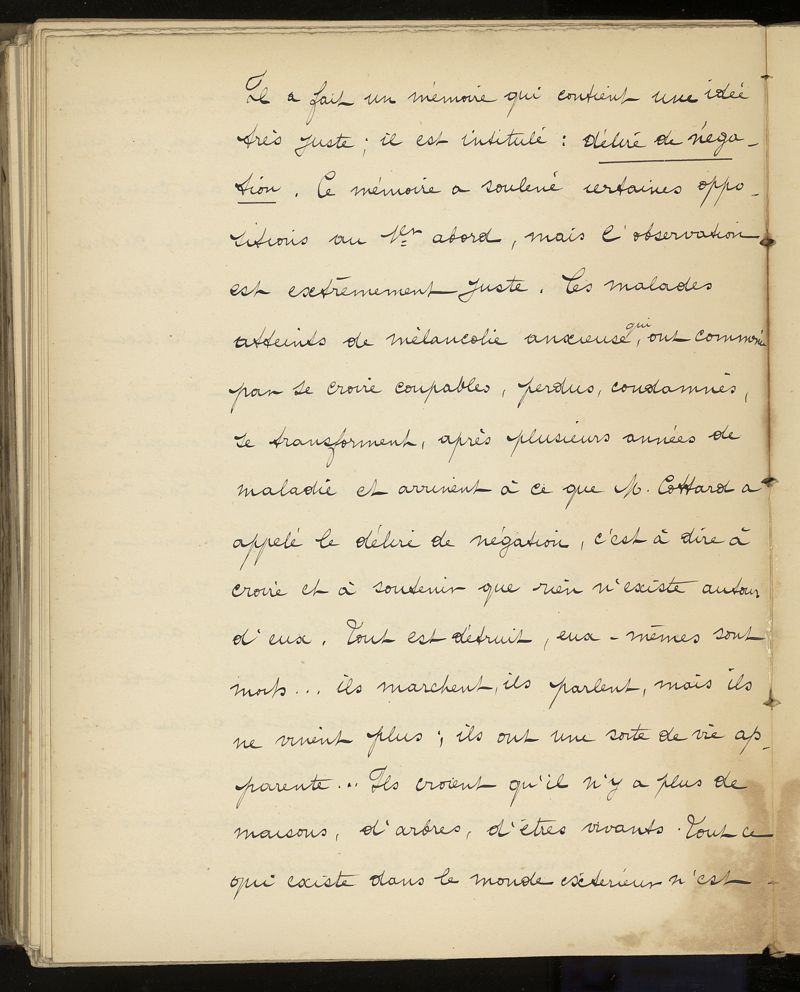 Il a fait un mémoire qui contient une idée
très juste ; il est intitulé : délire de néga-
tion. Ce mémoire a soulevé certaines oppo-
sitions au 1er abord, mais l'observation
est extrêmement juste. Ces malades
atteints de mélancolie anxieuse, qui ont commencé
par se croire coupables, perdus, condamnés,
se transforment, après plusieurs années de
maladie et arrivent à ce que M. Cottard a
appelé le délire de négation, c'est à dire à
croire et à soutenir que rien n'existe autour
d'eux. Tout est détruit, eux-mêmes sont
morts... ils marchent, ils parlent, mais ils
ne vivent plus ; ils ont une sorte de vie ap-
parente... Ils croient qu'il n'y a plus de
maisons, d'arbres, d'êtres vivants. Tout ce
qui existe dans le monde extérieur n'est